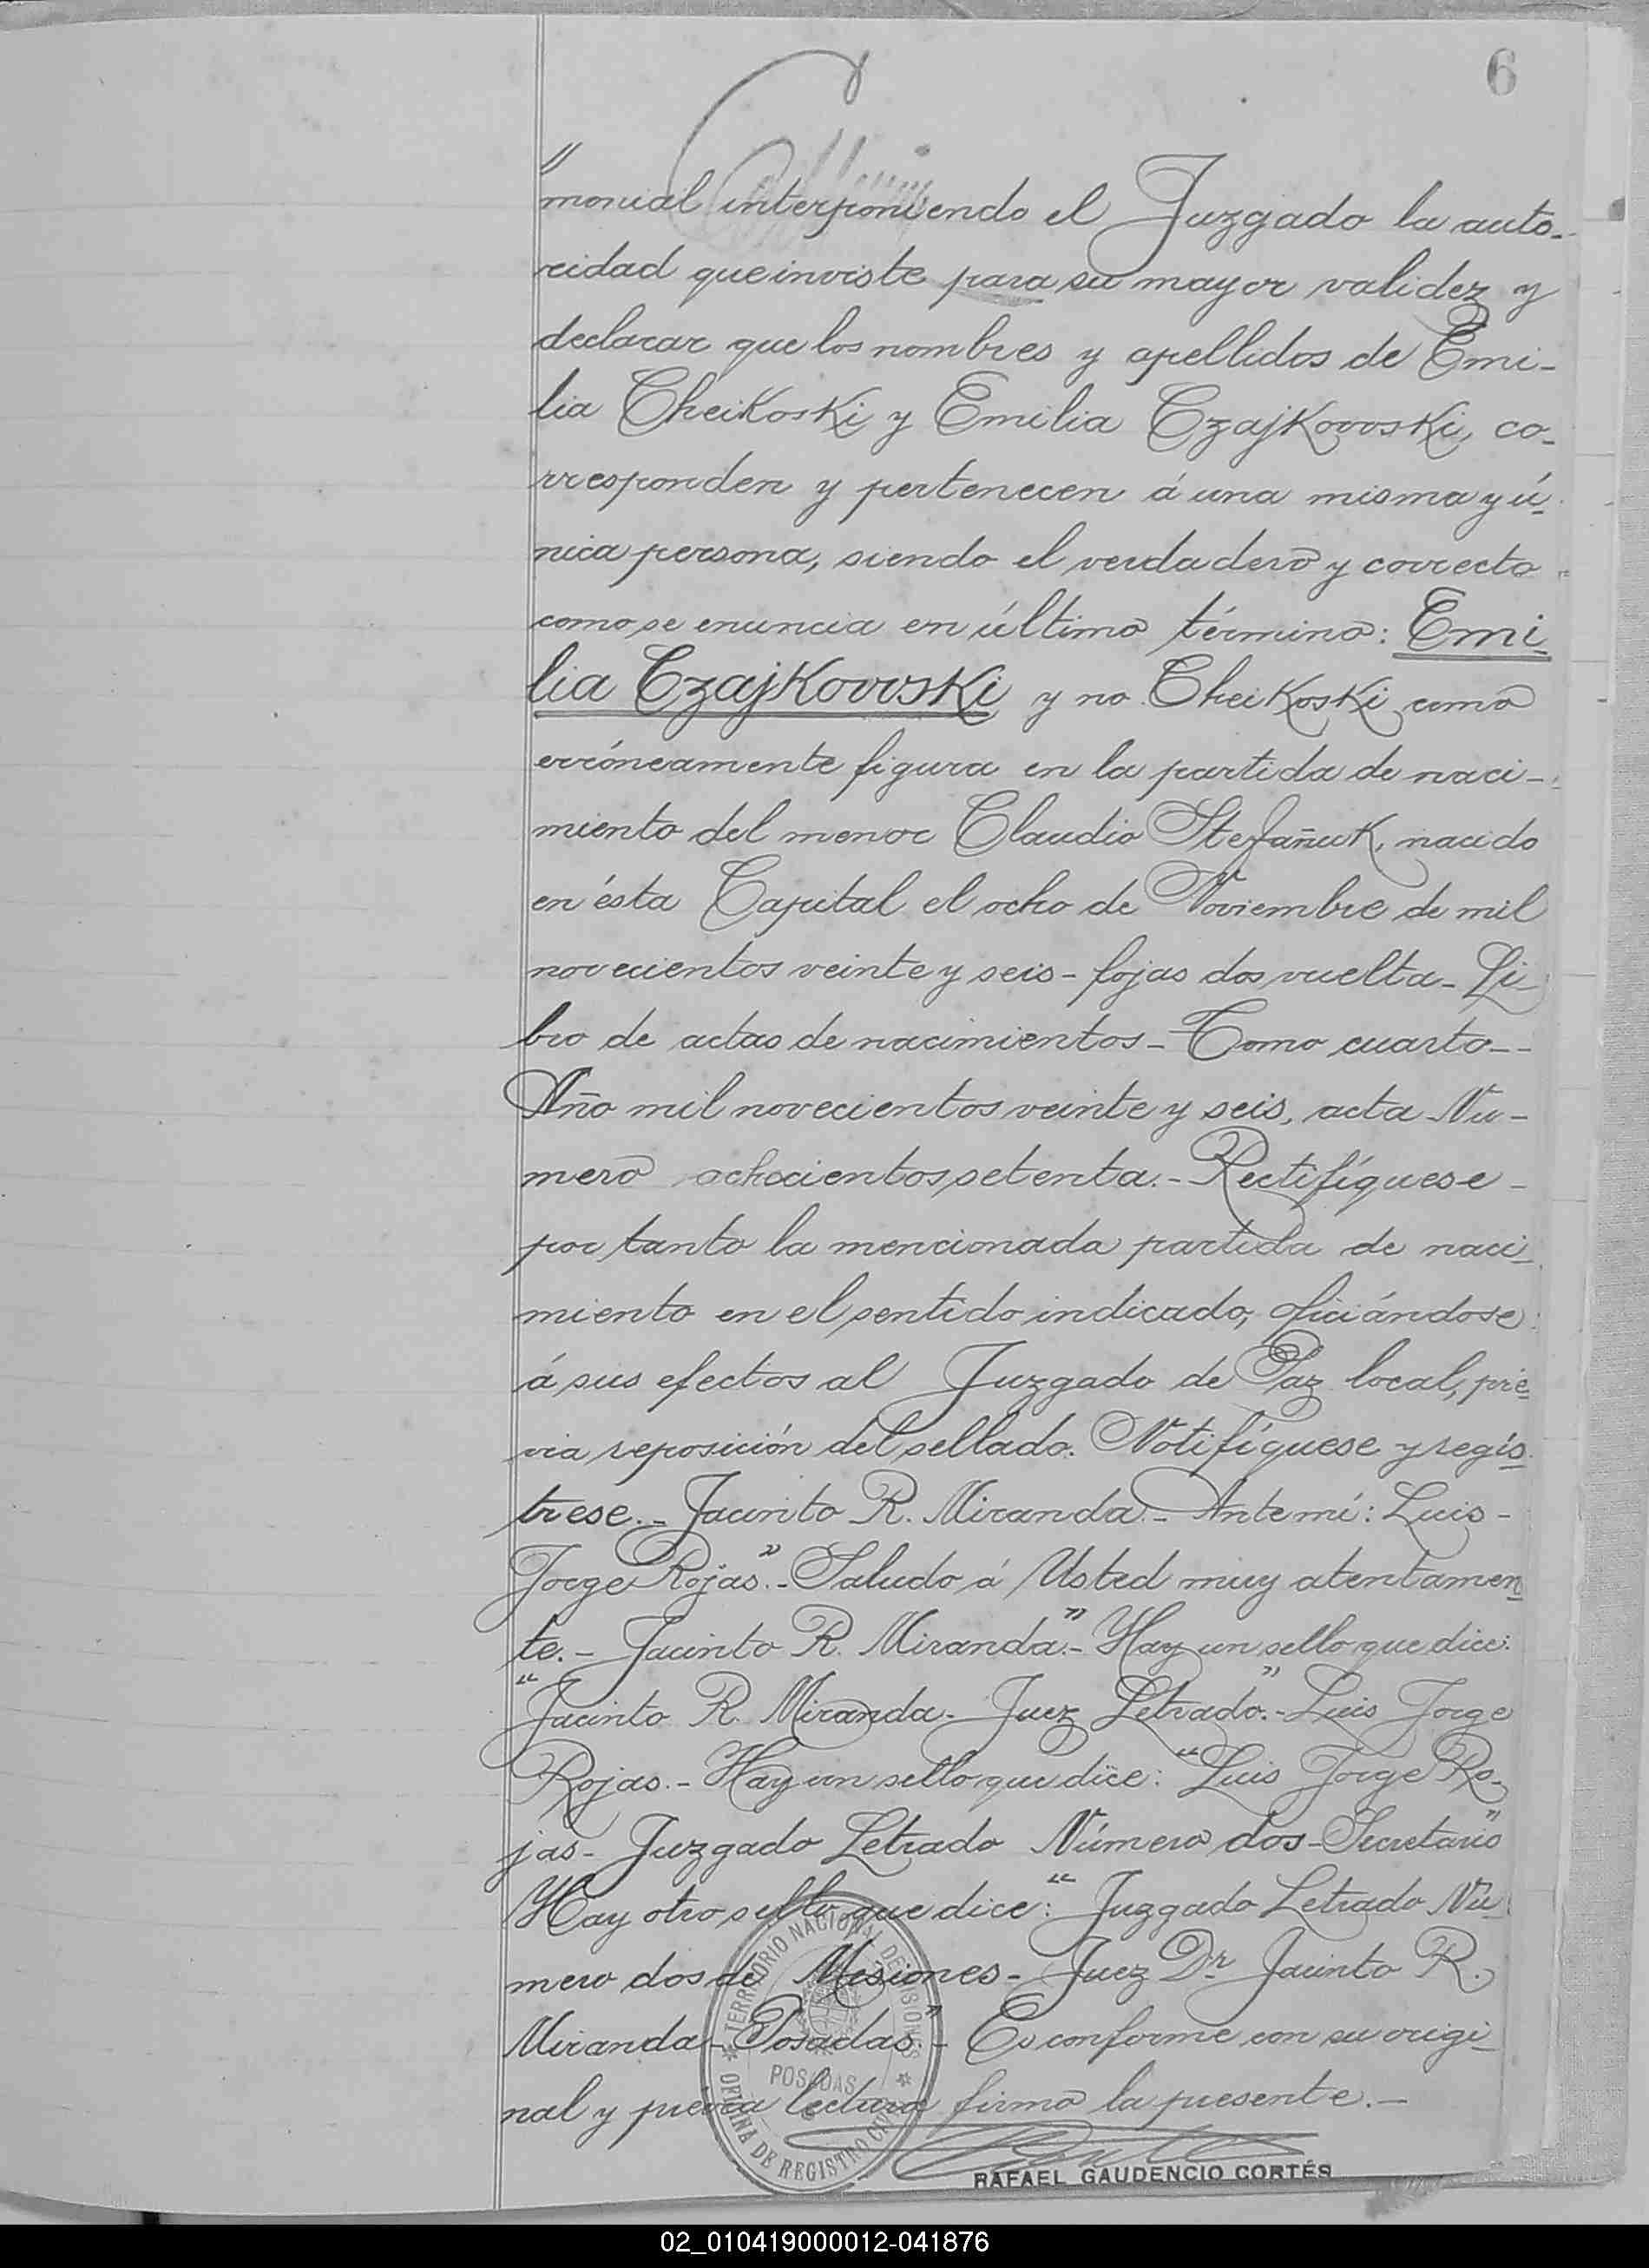 6
"
monial interponiendo el Juzgado la auto-
ridad que inviste para su mayor validez y
declarar que los nombres y apellidos de Emi-
lia Cheikoski y Emilia Czajkovvski, co-
rresponden y pertenecen á una misma y ú-
nica persona, siendo el verdadero y correcto
como se enuncia en último término: Emi-
lia Czajkovvski y no Cheikoski como
erróneamente figura en la partida de naci-
miento del menor Claudio Stefañuk, nacido
en ésta Capital el ocho de Noviembre de mil
novecientos veinte y seis - fojas dos vuelta - Li-
bro de actas de nacimientos - Tomo cuarto --
Año mil novecientos veinte y seis, acta Nu-
mero ochocientos setenta. - Rectifíquese -
por tanto la mencionada partida de naci-
miento en el sentido indicado, oficiándose
á sus efectos al Juzgado de Paz local, pre-
via reposición del sellado. Notifíquese y regís-
trese. - Jacinto R. Miranda. - Ante mí: Luis -
Jorge Rojas". - Saludo á Usted muy atentamen-
te. - Jacinto R. Miranda". - Hay un sello que dice:
"Jacinto R. Miranda - Juez Letrado". - Luis Jorge
Rojas. - Hay un sello que dice: "Luis Jorge Ro-
jas - Juzgado Letrado Número dos - Secretario"
Hay otro sello que dice: "Juzgado Letrado Nú-
mero dos de Misiones - Juez Dr. Jacinto R.
Miranda - Posadas". - Es conforme con su origi-
nal y prévia lectura firmo la presente. -
TERRITORIO NACIONAL DE MISIONES
POSADAS
OFICINA DE REGISTRO CIVIL
RAFAEL GAUDENCIO CORTÉS
02_010419000012-041876